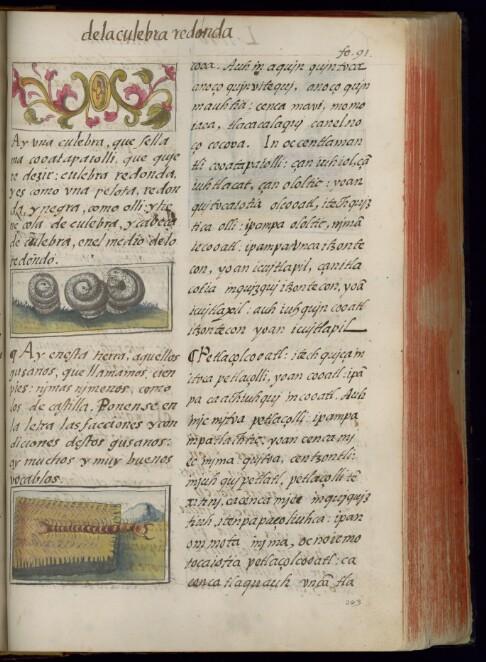 de la culebra redonda
fo. 91.
Ay vna culebra, que sella
ma cooatapaiolli, que quje
re dezir: culebra redonda,
yes como vna pelota, redon
da, y negra, como olli: ytie
ne cola de culebra, y cabeça
de culebra, enel medio delo
redondo.
¶ Ay enesta tierra, aquellos
gusanos, que llamamos, cien
pies: njmas njmenos, como
los de castilla. Ponense en
la letra las facciones y con
diciones destos gusanos:
ay muchos y muy buenos
vocablos.
coca. Auh in aquin qujntoca
anoço qujnvitequj, anoço qujn
mauhtia: cenca mavi, momo
iaoa, tlacacalaquj canel no
ço cocoua. In oc centlaman
tli cooatapaiolli: çan iuhiol, çã
iuhtlacat, çan ololtic: yoan
qujtocaiotia olcooatl, itech qujz
tica olli: ipampa ololtic, njmã
ie cooatl. ipampa vnca itzonte
con, yoan icujtlapil, çanitla
cotia mqujzquj itzontecon, yoã
icujtlapil: auh iuhqujn cooatl
itzontecon yoan icujtlapil
¶ Petlaçolcooatl: itech qujçam
itoca petlaçolli, yoan cooatl. ipã
pa ca athiuhquj in cooatl. Auh
injc mjtva petlaçolli: ipampa
yoan cenca mj
ec mjma qujtva, centzontli:
in petlatl, petlaçolli tẽ
ca cenca mjec
tiuh, itenpa ipan
inma, oc no ivi mo
tocaiotia petlaçolcooatl: ca
cenca tlaquauh vncã tla
243